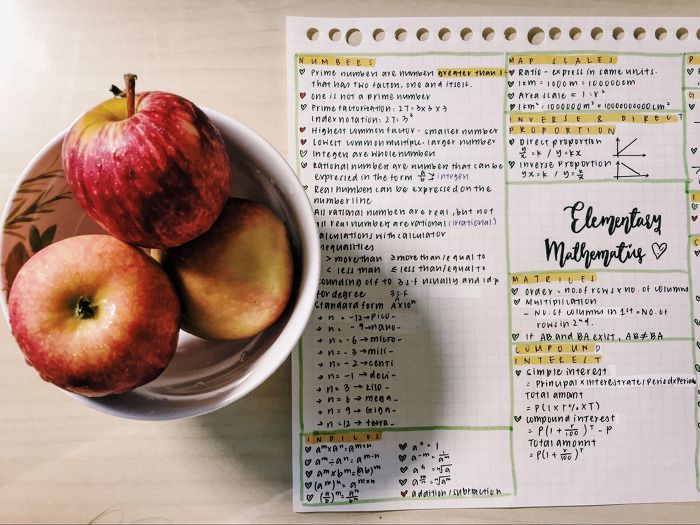 NUMBERS
Prime numbers are number greater than 1
that has two factors, one and itself.
one is not a prime number
Prime factorisation: 27 = 3x3x3
Index notation: 27 = 3³
Highest common factor - smaller number
Lowest common multiple - larger number
Integer are whole number
Rational number are number that can be
expressed in the form a/b → integer
Real number can be expressed on the
number line
All rational number are real, but not
all real number are rational (irrational)
calculations with calculator
inequalities
> more than ≥ more than/equal to
< less than ≤ less than/equal to
rounding off to 3 s.f usually and 1 d.p
for degree 3 s.f
standard form A x 10ⁿ
→ n = -12 → pico -
→ n = -9 → nano -
→ n = -6 → micro -
→ n = -3 → mili -
→ n = -2 → centi
→ n = -1 → deci -
→ n = 3 → kilo -
→ n = 6 → mega -
→ n = 9 → Giga -
→ n = 12 → tera -
INDICES
aᵐ x aⁿ = aᵐ⁺ⁿ
aᵐ ÷ aⁿ = aᵐ⁻ⁿ
aᵐ x bᵐ = (ab)ᵐ
(aᵐ)ⁿ = aᵐˣⁿ
(a/b)ᵐ = aᵐ/bᵐ
a⁰ = 1
addition/subtraction
MAP SCALES
Ratio - express in same units.
1km = 1000m = 100000cm
Area scale = 1 : r²
INVERSE & DIRECT
PROPORTION
Direct proportion
y/x = k / y = kx
Inverse proportion
yx = k / y = k/x
Elementary
Mathematics
MATRICES
order = no. of rows x no. of columns
Multiplication
- No. of columns in 1st = No. of
rows in 2nd.
if AB and BA exist, AB ≠ BA
COMPOUND
INTEREST
simple interest
= Principal x interest rate / period x period
Total amount
= P(1 + r% x T)
compound interest
= P(1 + r/100)ᵀ - P
Total amount
= P(1 + r/100)ᵀ